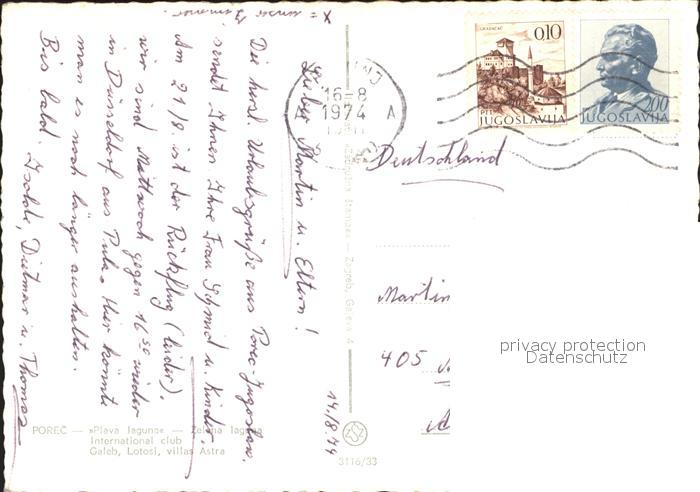 x = unser Zimmer.
Lieber Martin u. Eltern!
Die herzl. Urlaubsgrüße aus Porec-Jugoslaw.
sendet Ihnen Ihre Frau Schmid u. Kinder.
Am 21/8 ist der Rückflug (leider).
wir sind Mittwoch gegen 16⁵⁰ wieder
in Düsseldorf aus Pula. Hier könnte
man es noch länger aushalten.
Bis bald. Isolde, Dietmar u. Thomas
14./8.74
POREČ — »Plava laguna« — Zelena laguna
International club
Galeb, Lotosi, villas Astra
Zagreb, Galeva 4
3116/33
16-8
1974 A
GRADAČAC
0,10
PTT
JUGOSLAVIJA
2,00
JUGOSLAVIJA
Deutschland
Martin
405
privacy protection
Datenschutz